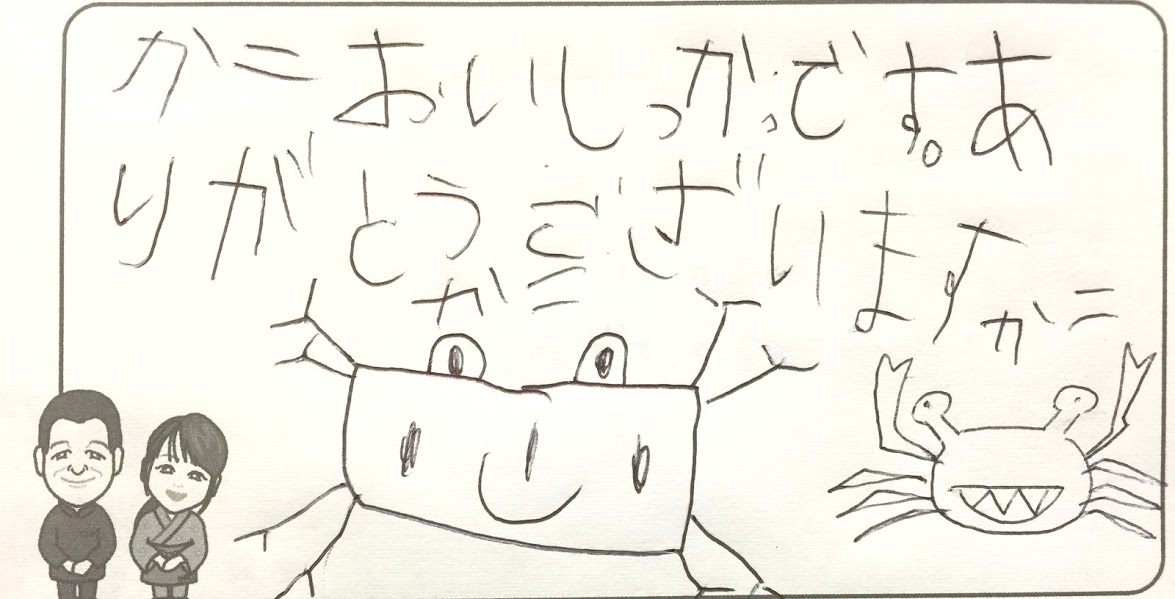 かニおいしっかっです。あ
りがとうございます
かニ
かニ